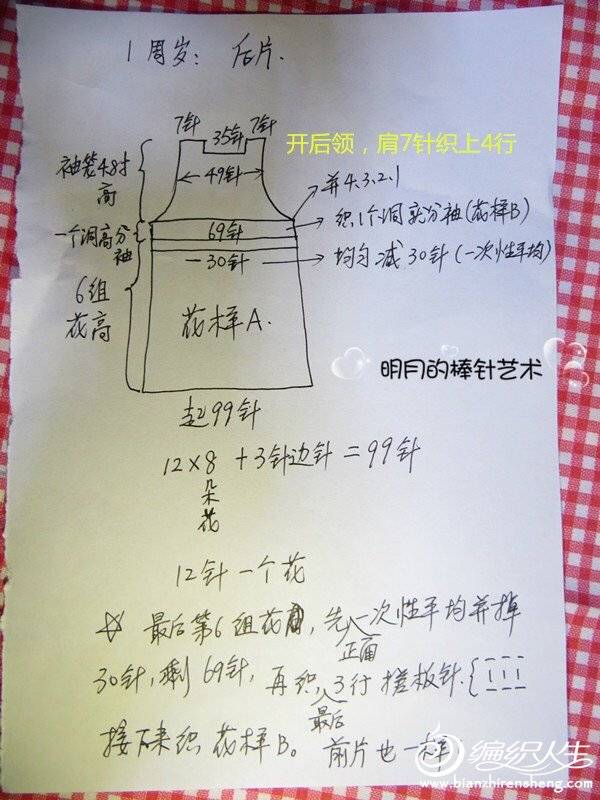 1周岁：后片.
7针 35针 7针
开后领，肩7针织上4行
袖笼4.8寸高
49针
并4.3.2.1
一个洞高分袖
69针
织1个洞就分袖(花样B)
一30针
均匀减30针(一次性平均)
6组花高
花样A.
明月的棒针艺术
起99针
12×8 +3针边针=99针
朵花
12针一个花
☆ 最后第6组花时，先一次性平均并掉
正面
30针，剩69针，再织3行搓板针.
最后
接下来织花样B。前片也一样
编织人生
www.bianzhirensheng.com